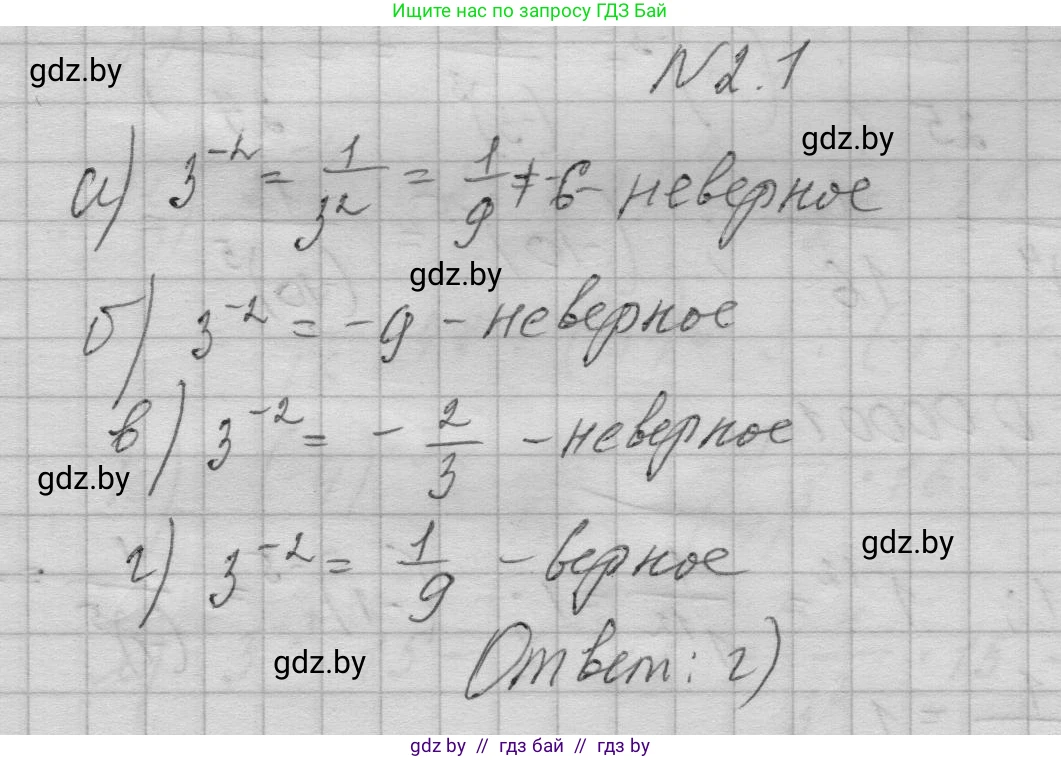 Ищите нас по запросу ГДЗ Бай
gdz.by
N 2.1
gdz.by
а) 3⁻² = 1/3² = 1/9 ≠ -6 - неверное
gdz.by
б) 3⁻² = -9 - неверное
в) 3⁻² = - 2/3 - неверное
gdz.by
г) 3⁻² = 1/9 - верное
gdz.by
gdz.by
Ответ: г)
gdz by // гдз бай // gdz by